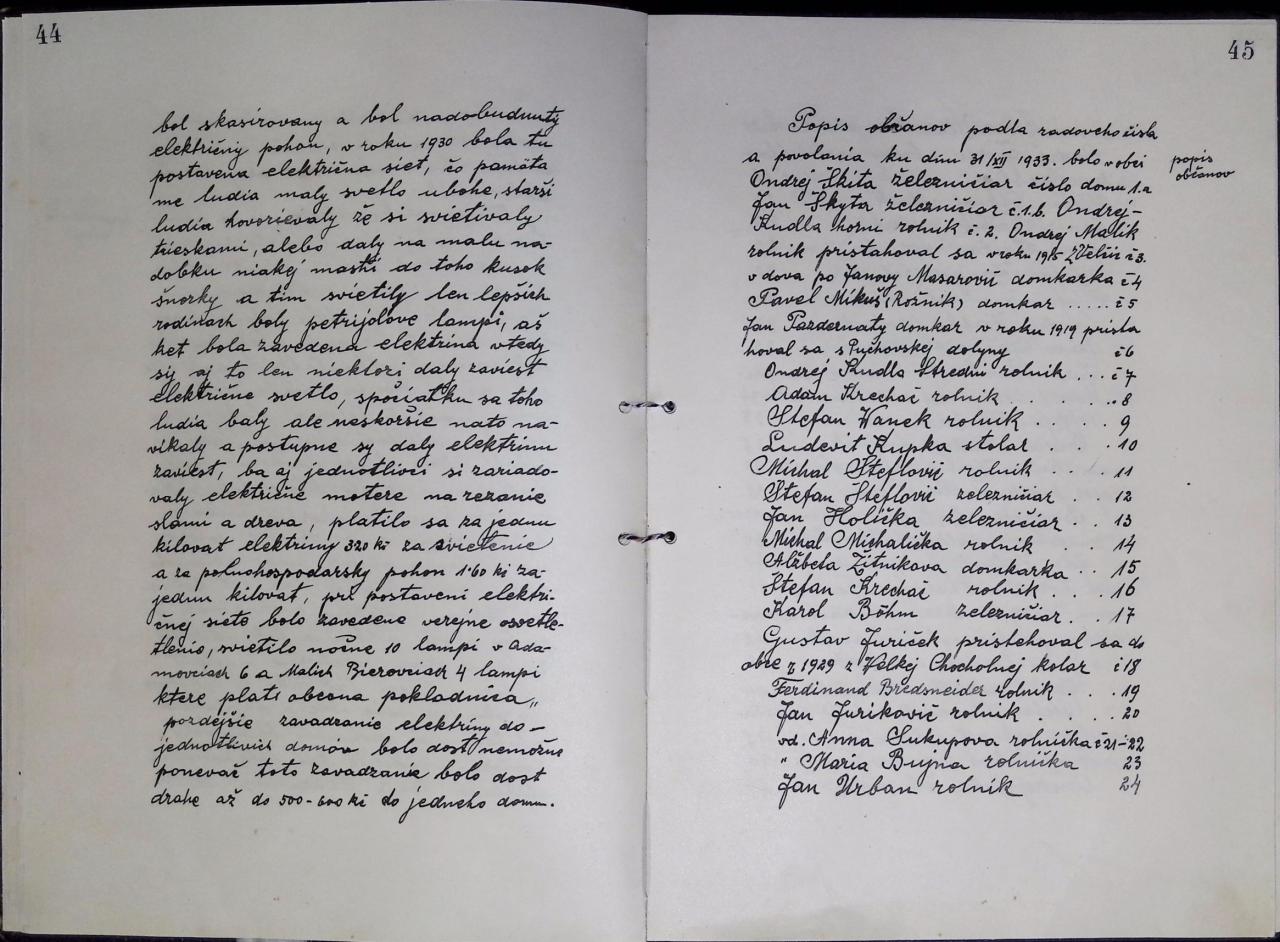 44
bol skasirovany a bol nadobudnuty
električny pohon, v roku 1930 bola tu
postavena električna siet, čo pamäta
me ludia maly svetlo ubohe, starši
ludia hovorievaly že si svietivaly
trieskami, alebo daly na malu na-
dobku niakej masti do toho kusok
šnorky a tim svietily len lepšich
rodinach boly petrijolove lampi, aš
ket bola zavedena elektrina vtedy
sy aj to len niektori daly zaviest
električne svetlo, spočiatku sa toho
ludia baly ale neskoršie nato na-
vikaly a postupne sy daly elektrinu
zaviest, ba aj jednotlivci si zariado-
valy električne motere na rezanie
slami a dreva, platilo sa za jednu
kilovat elektriny 320 kč za svietenie
a za poluohospodarsky pohon 1·60 kč za-
jednu kilovat, pri postaveni elektri-
čnej siete bolo zavedene verejne osvetle-
tlenio, svietilo nočne 10 lampi v Ada-
moviach 6 a Malich Bierovciach 4 lampi
ktere plati obecna pokladnica „
pozdejšie zavadzanie elektriny do-
jednotlivich domóv bolo dost nemožne
ponevač toto zavadzanie bolo dost
drahe až do 500-600 kč do jedneho domu.
45
Popis občanov podla radoveho čisla
a povolania ku dnu 31/XII 1933. bolo v obci
popis
občanov
Ondrej Škita železničiar čislo domu 1.a
Jan Škyta železničiar č.1.b. Ondrej-
Kudla horni rolnik č. 2. Ondrej Malik
rolnik pristahoval sa v roku 1915 z Velčic č3.
vdova po Janovy Masarovič domkarka č4
Pavel Mikuš (Rožnik) domkar ..... č5
Jan Pazdernaty domkar v roku 1919 prista
hoval sa s Puchovskej dolyny č6
Ondrej Kudla Stredni rolnik ... č7
Adam Krechač rolnik . . . . . 8
Stefan Wanek rolnik . . . . . 9
Ludevit Kupka stolar . . . 10
Michal Šteflovič rolnik . . . 11
Stefan Šteflovič zelezničiar . . 12
Jan Holička zelezničiar . . 13
Michal Michalička rolnik . . 14
Alžbeta Žitnikova domkarka . . 15
Štefan Krechač rolnik . . . 16
Karol Böhm železničiar . . 17
Gustav Juriček pristehoval sa do
obce r 1929 z Velkej Chocholnej kolar č18
Ferdinand Bredsneider rolnik . . . 19
Jan Jurikovič rolnik . . . . 20
vd. Anna Sukupova rolnička č21-22
„ Maria Bujna rolnička 23
Jan Urban rolnik 24